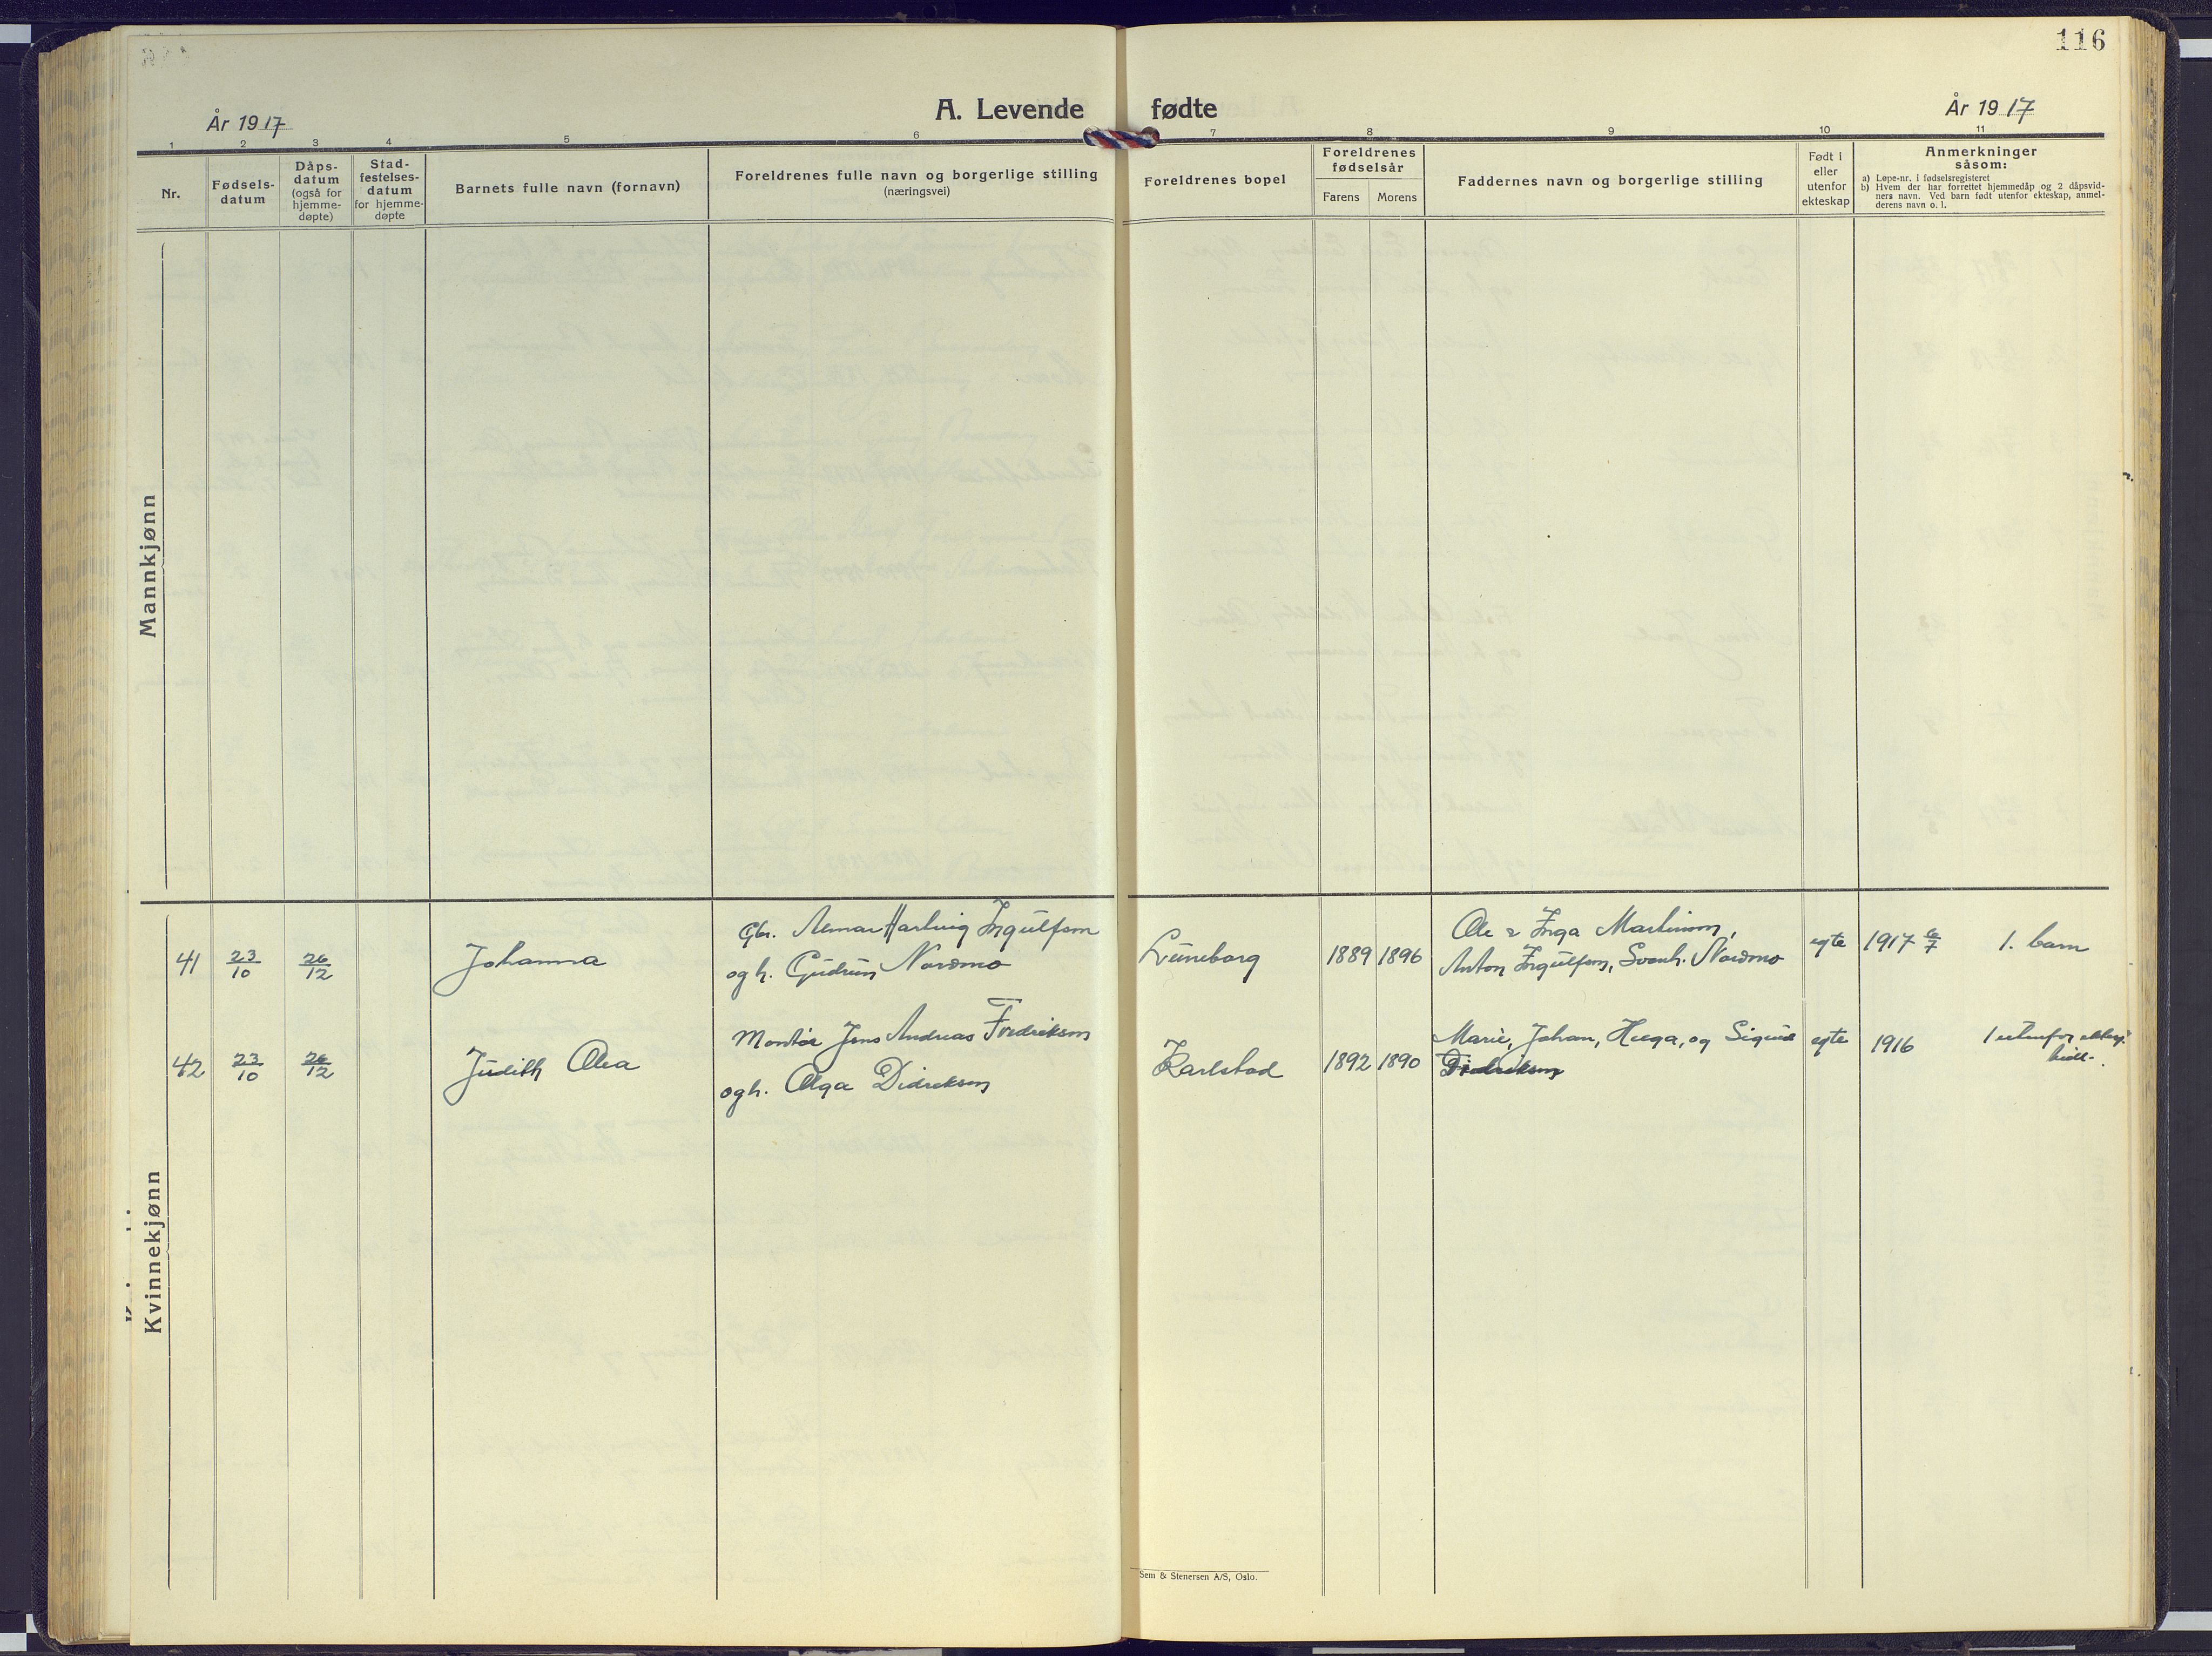 116
A. Levende fødte
År 1917
År 1917
1 2 3 4 5 6 7 8 9 10 11
Nr.
Fødsels-
datum
Dåps-
datum
(også for
hjemme-
døpte)
Stad-
festelses-
datum
for hjemme-
døpte
Barnets fulle navn (fornavn)
Foreldrenes fulle navn og borgerlige stilling
(næringsvei)
Foreldrenes bopel
Foreldrenes
fødselsår
Farens Morens
Faddernes navn og borgerlige stilling
Født i
eller
utenfor
ekteskap
Anmerkninger
såsom:
a) Løpe-nr. i fødselsregisteret
b) Hvem der har forrettet hjemmedåp og 2 dåpsvid-
ners navn. Ved barn født utenfor ekteskap, anmel-
derens navn o. l.
Mannkjønn
Kvinnekjønn
Gbr. Hartvig Ingulfsen
41 23/10 26/12 Johanna
og h. Gudrun Nordmo
Lüneborg 1889 1896
Ole & Inga Martinsen,
Anton Ingulfsen, Svanh. Nordmo
egte 1917 6/7 1. barn
Montør Jens Andreas Fredriksen
42 23/10 26/12 Judith Olea
og h. Olga Didriksen
Karlstad 1892 1890
Marie, Johan, Helga, og Sigurd
Didriksen
egte 1916 1 utenfor
Sem & Stenersen A/S, Oslo.